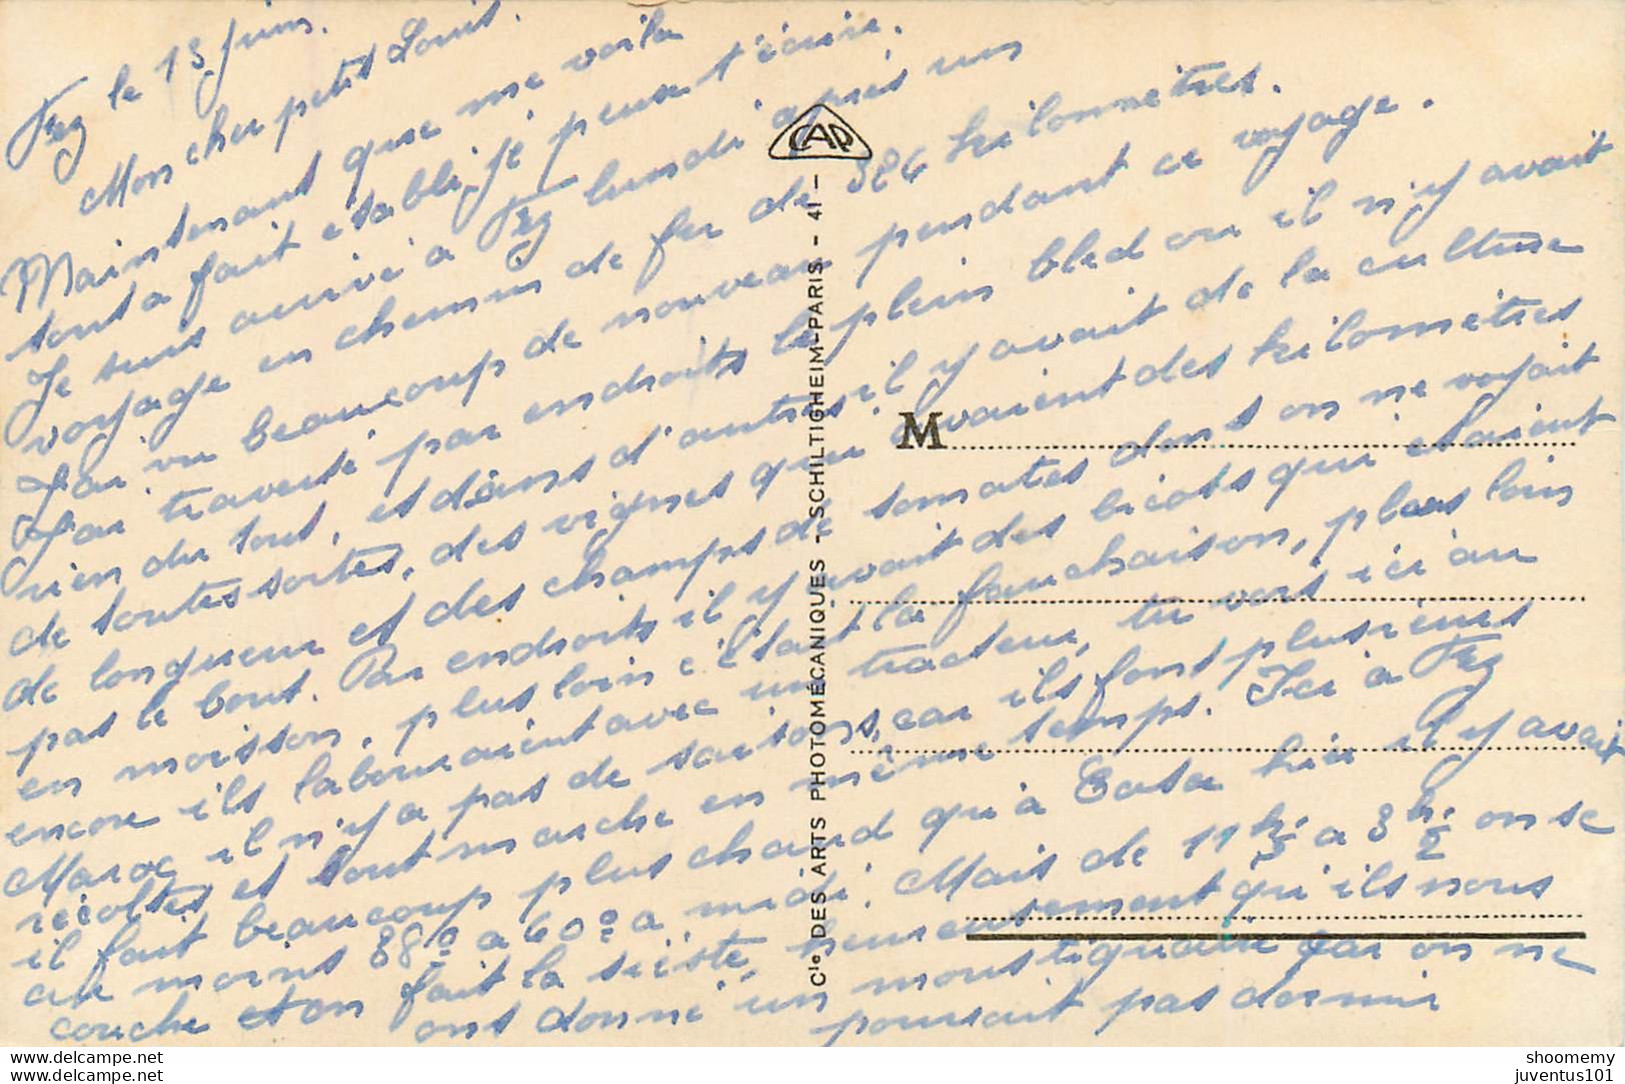 Fez le 13 juin.
Mon cher petit Louis.
Maintenant que me voila
tout a fait etabli, je peux t'écrire.
Je suis arrivé a Fez lundi après un
voyage en chemin de fer de 384 kilomètres.
J'ai vu beaucoup de nouveau pendant ce voyage.
J'ai traversé par endroits le plein bled ou il n'y avait
rien du tout, et dans d'autres il y avait de la culture
de toutes sortes, des vignes qui avaient des kilomètres
de longueur et des champs de tomates dont on ne voyait
pas le bout. Par endroits il y avait des bicots qui etaient
en moisson, plus loin c'était la fauchaison, plus loin
encore ils labouraient avec un tracteur, tu vois ici au
Maroc il n'y a pas de saisons, car ils font plusieurs
récoltes et tout marche en même temps. Ici a Fez
il fait beaucoup plus chaud qu'à Casa hier il y avait
au moins 38° a 40° a midi. Mais de 11h a 3h 1/2 on se
couche et on fait la sieste, heureusement qu'ils nous
ont donné un moustiquaire car on ne
pourrait pas dormir
CAP
Cie DES ARTS PHOTOMÉCANIQUES - SCHILTIGHEIM-PARIS - 41 -
M
shoomemy
juventus101